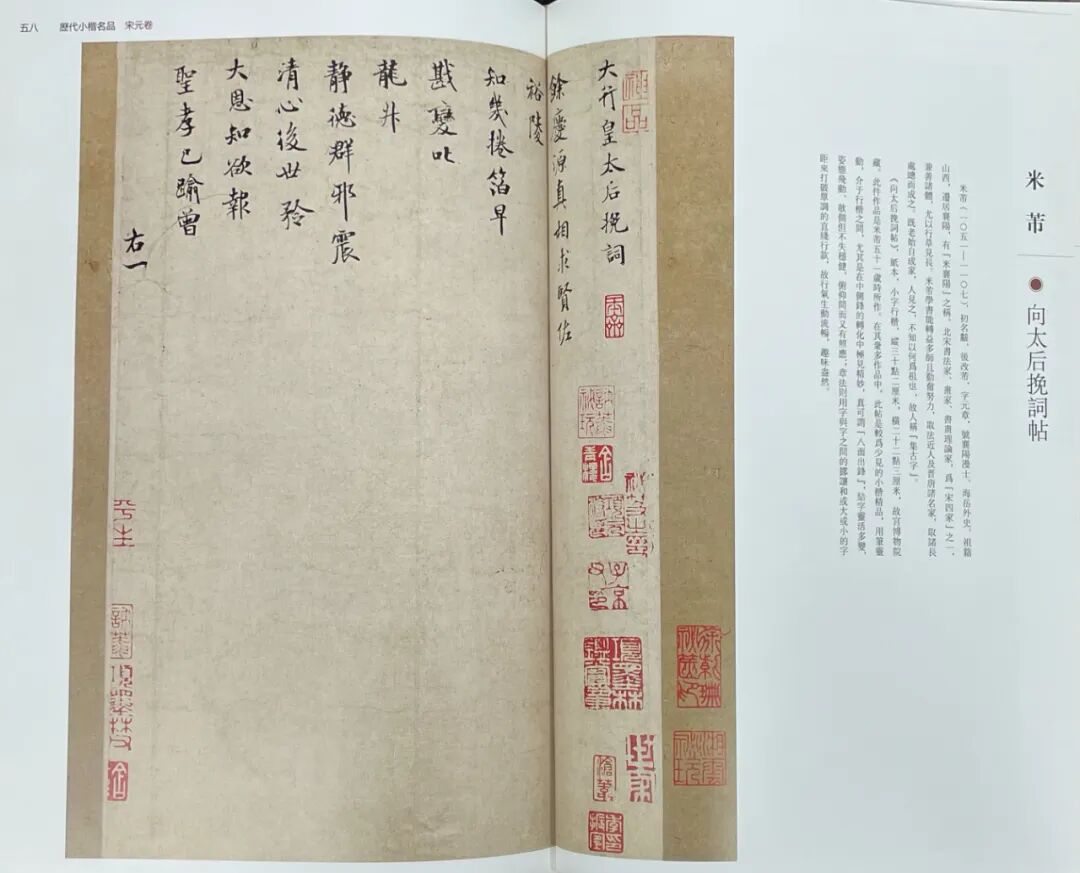 五八 歷代小楷名品 宋元卷
米芾 ● 向太后挽詞帖
米芾(一〇五一—一一〇七),初名黻,後改芾,字元章,號襄陽漫士、海岳外史。祖籍
山西,遷居襄陽,有『米襄陽』之稱。北宋書法家、畫家、書畫理論家,爲『宋四家』之一,
兼善諸體,尤以行草見長。米芾學書能轉益多師且勤奮努力,取法近人及晋唐諸名家,取諸長
處總而成之。既老始自成家,人見之,不知以何爲祖也,故人稱『集古字』。
《向太后挽詞帖》,紙本,小字行楷,縱三十點二厘米,横二十二點三厘米,故宫博物院
藏。此件作品是米芾五十一歲時所作。在其衆多作品中,此帖是較爲少見的小楷精品,用筆靈
動,介于行楷之間,尤其是在中側鋒的轉化中極見精妙,真可謂『八面出鋒』,結字靈活多變,
姿態飛動,欹側但不失穩健,俯仰間而又有照應;章法則用字與字之間的挪讓和或大或小的字
距來打破單調的直綫行款,故行氣生動流暢,趣味盎然。
神品
大行皇太后挽詞
餘慶源真相求賢佐
裕陵
知幾捲箔早
戡變叱
龍升
静德群邪震
清心後世矜
大恩知欲報
聖孝已踰曾
右一